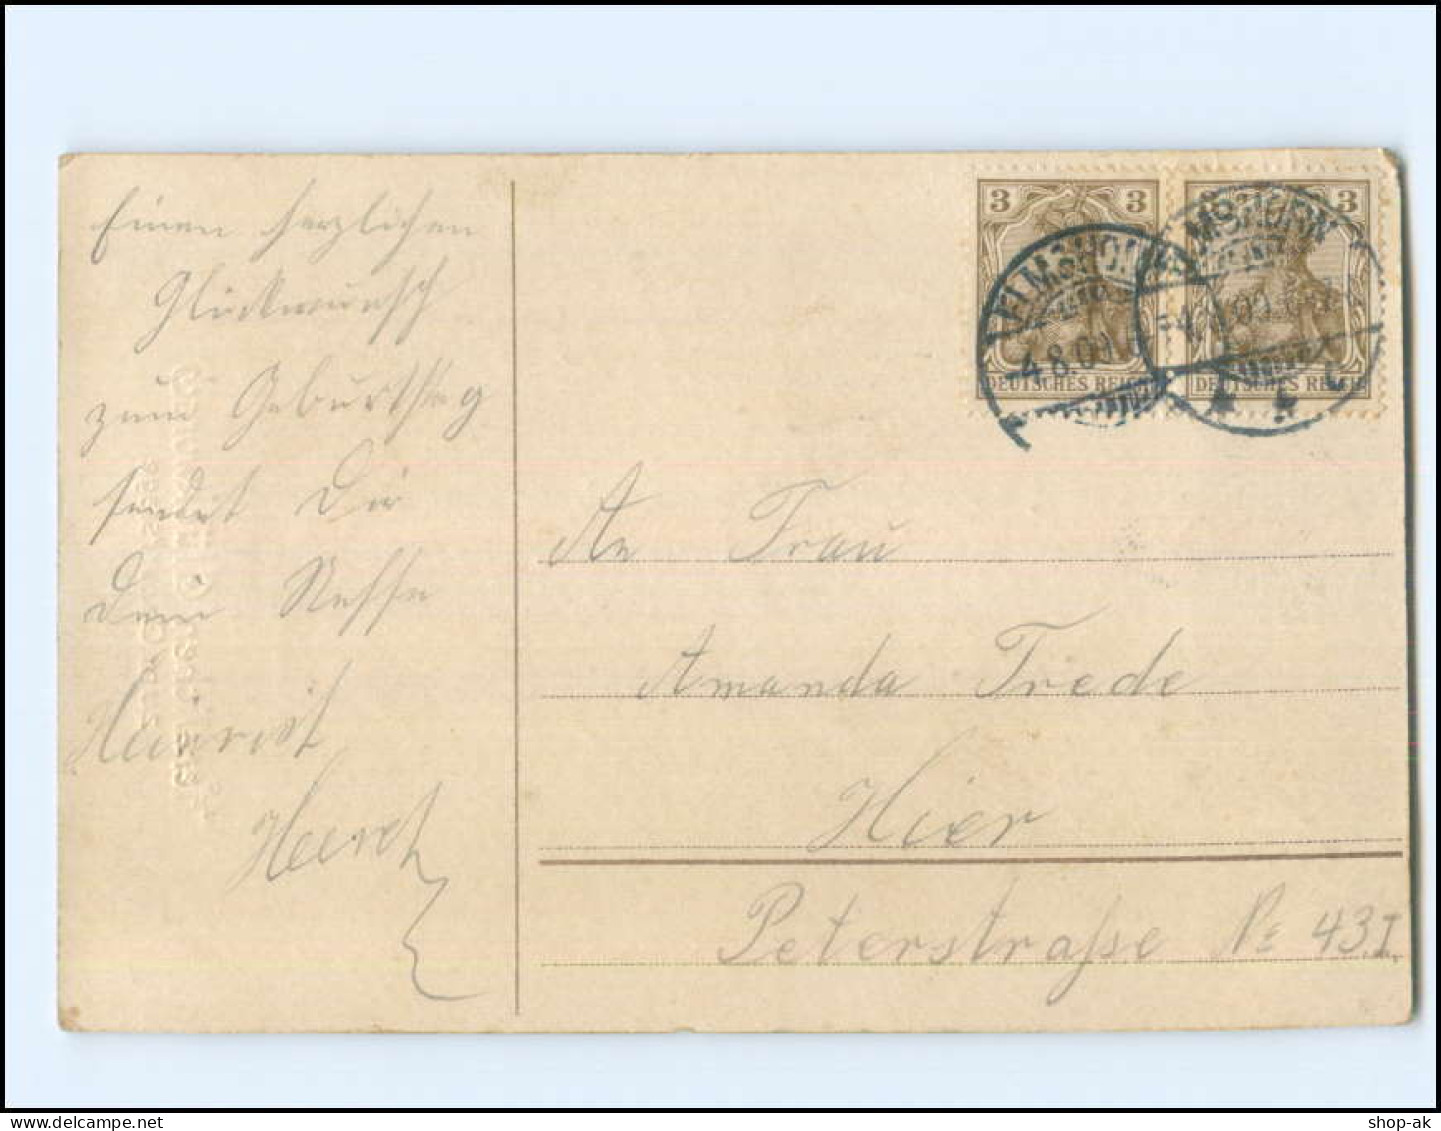 Einen herzlichen
Glückwunsch
zum Geburtstag
sendet Dir
Dein Neffe
Heinrich
3 3
3 3
ELMSHORN
4.8.09
ELMSHORN
4.8.09
DEUTSCHES REICH
DEUTSCHES REICH
An Frau
Amanda Trede
Hier
Peterstraße No 43.I.
shop-ak